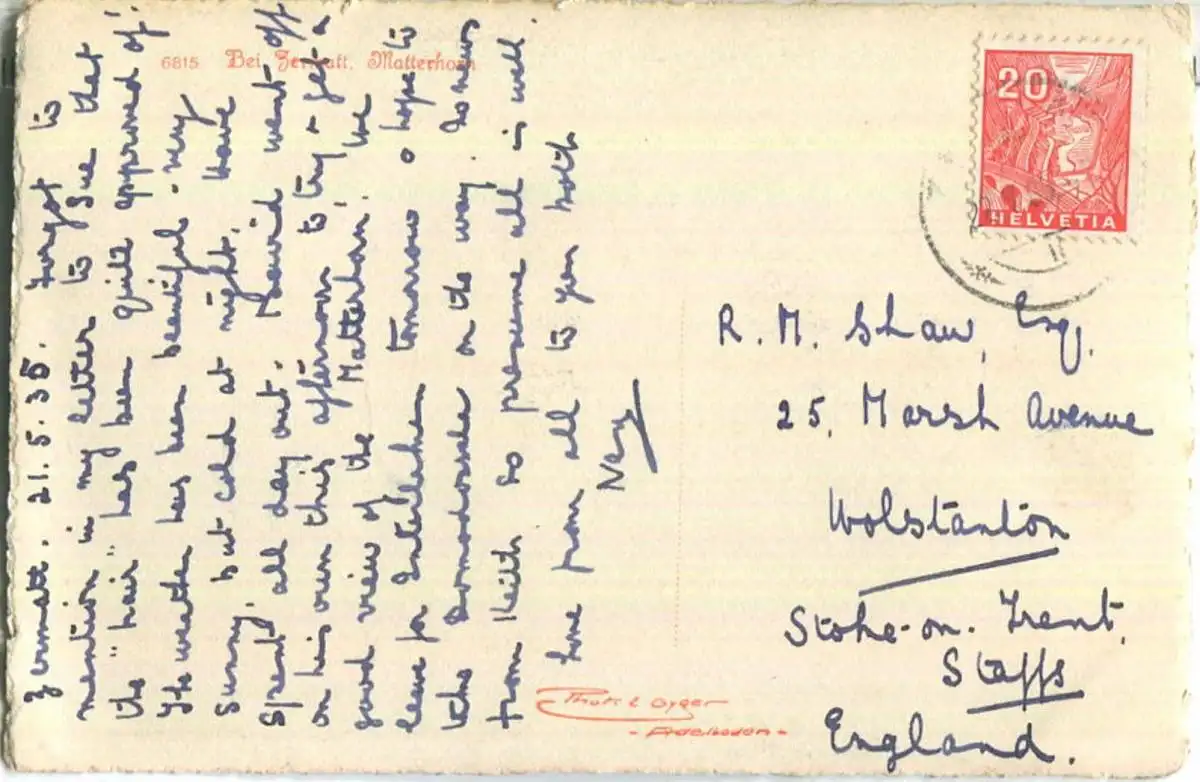 6815 Bei Zermatt, Matterhorn
Zermatt. 21.5.35. Forgot to
mention in my letter to Sue that
the "hair" has been quite approved of!
The weather has been beautiful - very
sunny, but cold at night. Have
spent all day out. David went off
on his own this afternoon to try & get a
good view of the Matterhorn. We
leave for Interlaken tomorrow & hope to
take Domodossola on the way. No news
from Keith so presume all is well.
Love from all to you both
20
HELVETIA
R. M. Shaw, Esq.
25, Marsh Avenue
Wolstanton
Stoke-on-Trent,
Staffs
England.
Phot. E Gyger
- Adelboden -